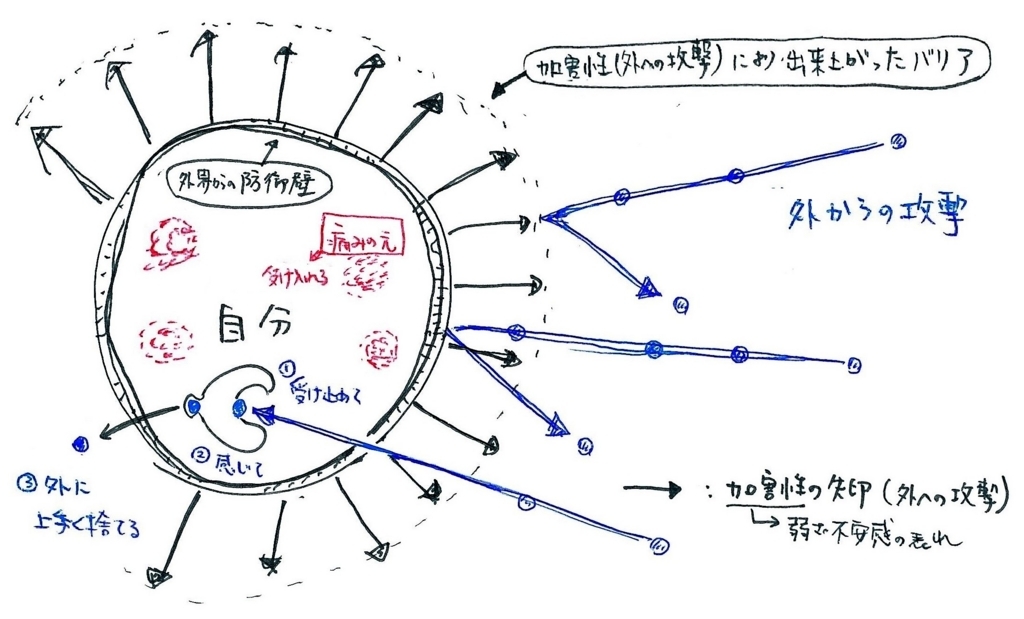 加害性(外への攻撃)により出来上がったバリア
外界からの防御壁
外からの攻撃
痛みの元
受け入れる
自分
①受け止めて
②感じて
③外に
上手く捨てる
→:加害性の矢印(外への攻撃)
↳弱さ不安感の表れ